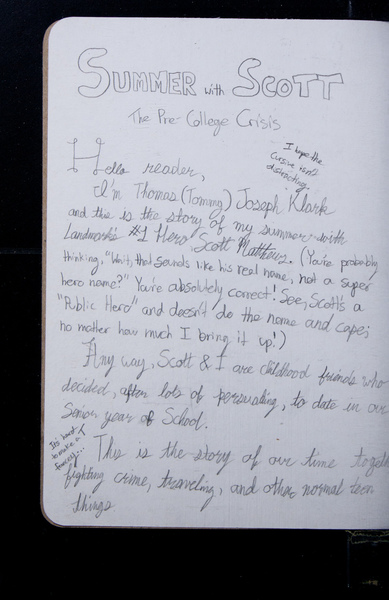 SUMMER with SCOTT
The Pre-College Crisis
I hope the
cursive isn't
distracting.
Hello reader,
I'm Thomas (Tommy) Joseph Klark
and this is the story of my summer with
Landmark's #1 Hero, Scott Matthews. (You're probably
thinking, "Wait, that sounds like his real name, not a super
hero name?" You're absolutely correct! See, Scott's a
"Public Hero" and doesn't do the name and cape;
no matter how much I bring it up!)
Any way, Scott & I are childhood friends who
decided, after lots of persuading, to date in our
Senior year of School.
It's hard
to make a T
fancy...
This is the story of our time togeth
fighting crime, traveling, and other normal teen
things.